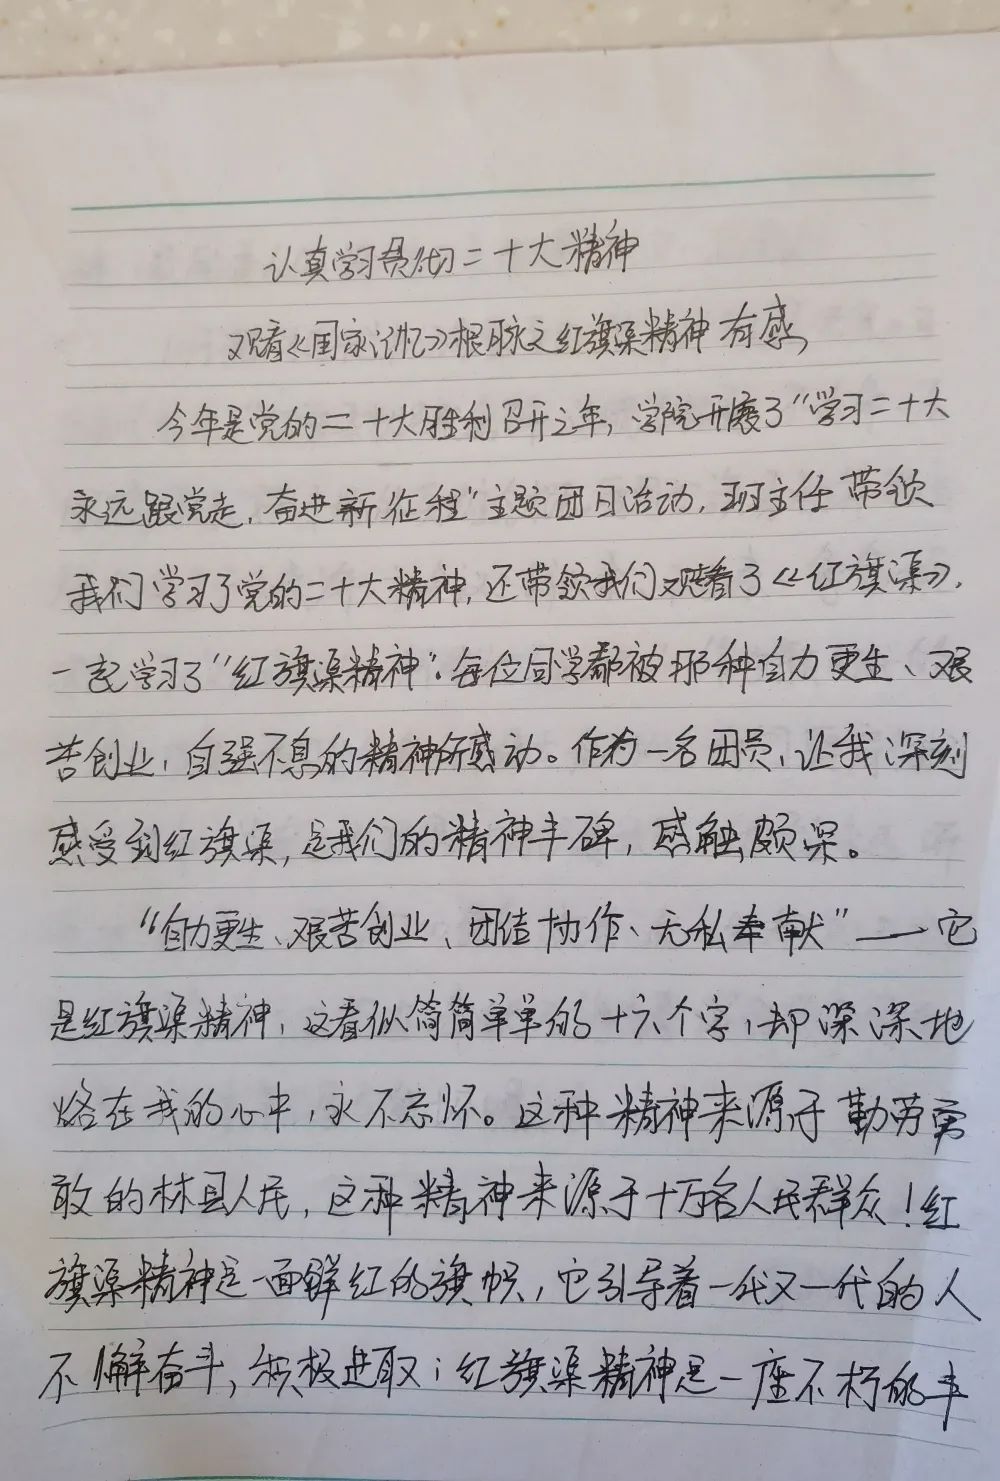 认真学习贯彻二十大精神
观看《国家记忆》根脉之红旗渠精神有感
今年是党的二十大胜利召开之年，学院开展了“学习二十大
永远跟党走，奋进新征程”主题团日活动，班主任带领
我们学习了党的二十大精神，还带领我们观看了《红旗渠》，
一起学习了“红旗渠精神”。每位同学都被那种自力更生、艰
苦创业，自强不息的精神所感动。作为一名团员，让我深刻
感受到红旗渠，是我们的精神丰碑，感触颇深。
“自力更生、艰苦创业、团结协作、无私奉献”——它
是红旗渠精神，这看似简简单单的十六个字，却深深地
烙在我的心中，永不忘怀。这种精神来源于勤劳勇
敢的林县人民，这种精神来源于十万名人民群众！红
旗渠精神是一面鲜红的旗帜，它引导着一代又一代的人
不懈奋斗，积极进取；红旗渠精神是一座不朽的丰